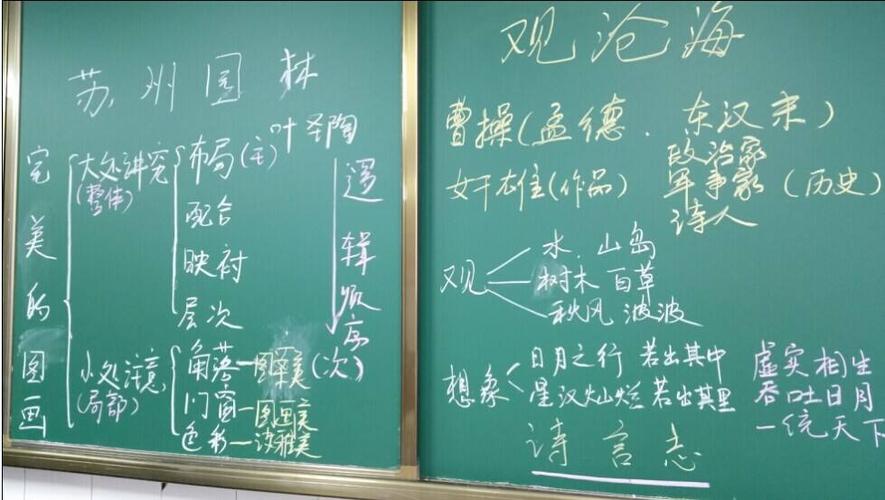 苏州园林
叶圣陶
完美的图画
大处讲究
(整体)
布局(主)
配合
映衬
层次
小处注意
(局部)
角落—图案美(次)
门窗—图画美
色彩—淡雅美
逻辑顺序
观沧海
曹操(孟德．东汉末)
奸雄(作品)
政治家
军事家(历史)
诗人
观
水．山岛
树木 百草
秋风 波波
想象
日月之行 若出其中
星汉灿烂 若出其里
虚实相生
吞吐日月
一统天下
诗言志